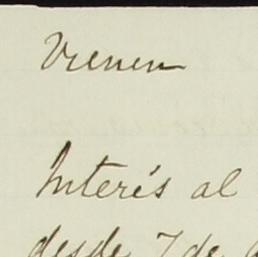 Vienen
Interés al
desde 7 de